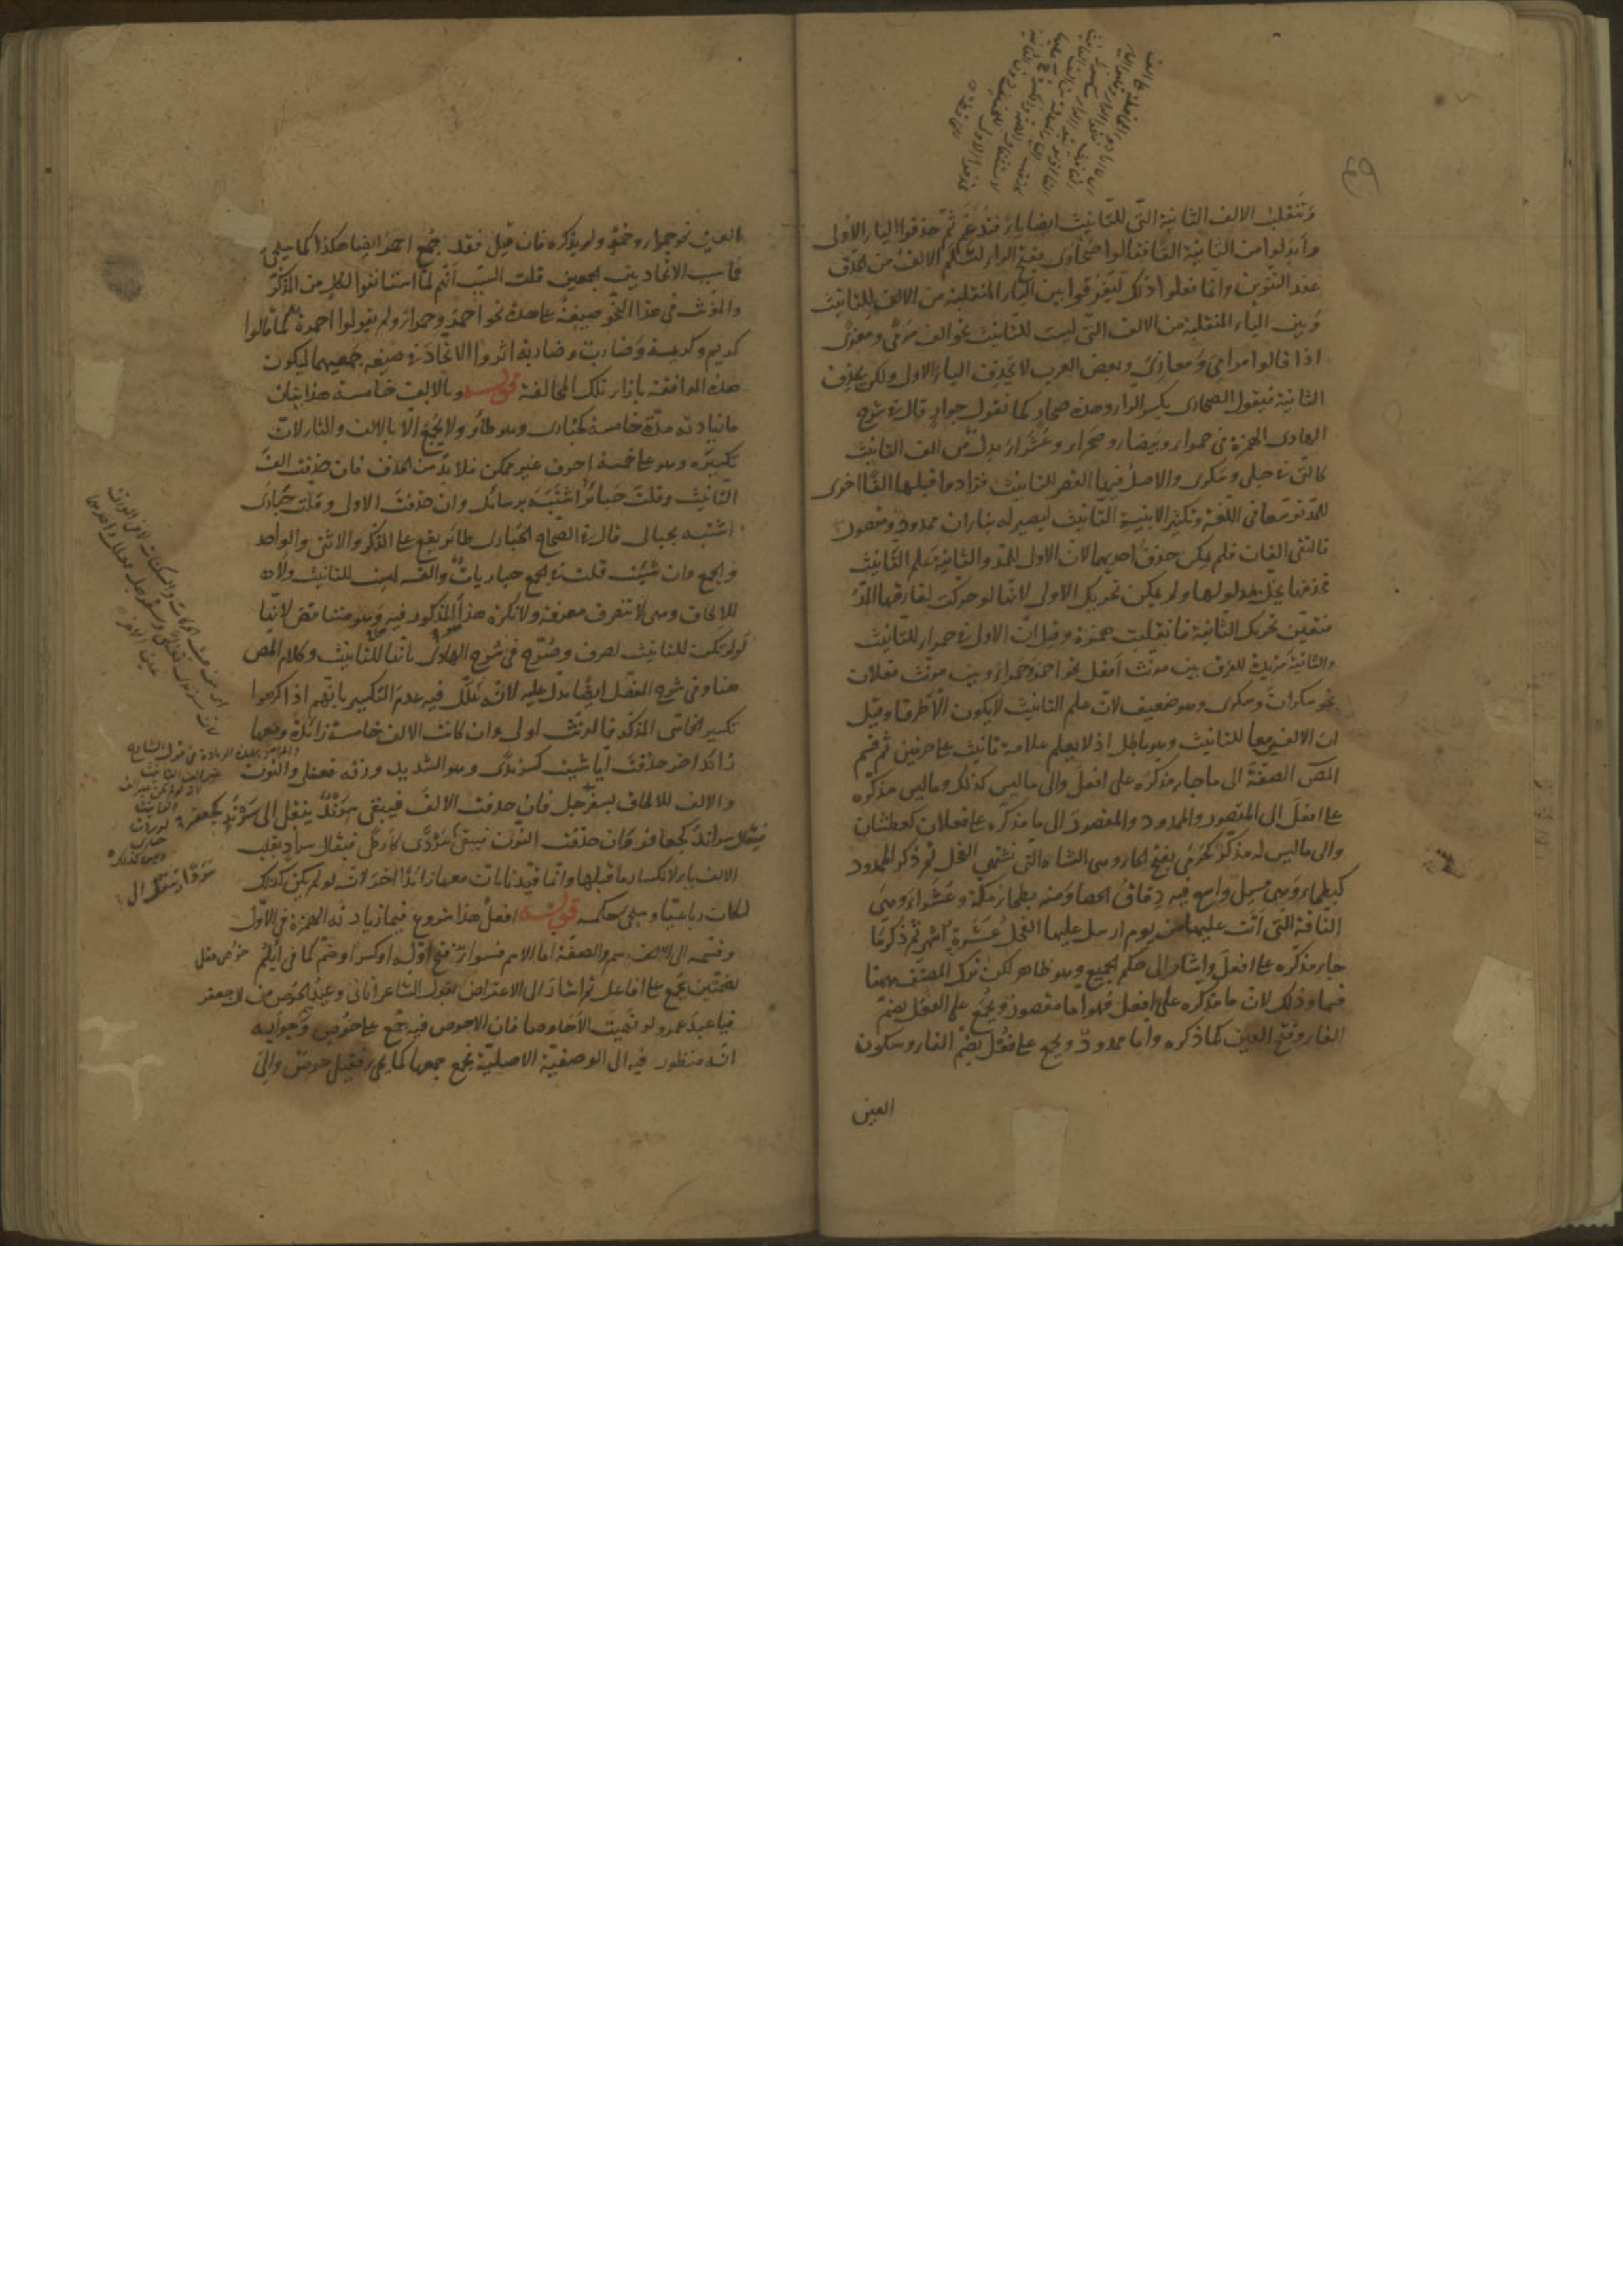 وتنقلب الالف الثانية التى للتانيث ايضا ياء فتدغم ثم حذفوا الياء الاولى
وابدلوا من الثانية الفا فقالوا صحارى بفتح الراء لتسلم الالف من الحذف
عند التنوين وانما فعلوا ذلك ليفرقوا بين الياء المنقلبة من الالف للتانيث
وبين الياء المنقلبة من الالف التى ليست للتانيث نحو الف مرمى ومغزى
اذا قالوا مرامى ومغازى وبعض العرب لا يحذف الياء الاولى ولكن يحذف
الثانية فيقول الصحارى بكسر الراء وهذه صحار كما تقول جوار قال فى شرح
الهادى الهمزة فى حمراء وبيضاء وصحراء وعشراء بدل من الف التانيث
كالتى فى حبلى وسكرى والاصل فيها القصر للتانيث فزادوا قبلها الفا اخرى
للمد توسعا فى اللغة وتكثير الابنية التانيث ليصير له بناءان ممدود ومقصور
فالتقى الفان فلم يمكن حذف احديهما لان الاولى للمد والثانية علم التانيث
فحذفها يخل بمدلولها ولم يمكن تحريك الاولى لانها لو حركت لفارقها المد
فتعين تحريك الثانية فانقلبت همزة وقيل ان الاولى فى حمراء للتانيث
والثانية مزيدة للفرق بين مونث افعل نحو احمر وحمراء وبين مونث فعلان
نحو سكران وسكرى وهو ضعيف لان علم التانيث لا يكون الا طرفا وقيل
ان الالفين معا للتانيث وهو باطل اذ لا يعلم علامة تانيث على حرفين ثم قسم
المص الصفة الى ما جاء مذكره على افعل والى ما ليس كذلك وما ليس مذكره
على افعل الى المقصور والممدود والمقصور الى ما مذكره على فعلان كعطشان
والى ما ليس له مذكر كحرمى بفتح الحاء وهى الشاة التى تشتهى الفحل ثم ذكر الممدود
كبطحاء وهى مسيل واسع فيه دقاق الحصا ومنه بطحاء مكة وعشراء وهى
الناقة التى اتت عليها من يوم ارسل عليها الفحل عشرة اشهر ثم ذكر ما
جاء مذكره على افعل واشار الى حكم الجميع وهو ظاهر لكن ترك المصنف ههنا
قسما وذلك لان ما مذكره على افعل فهو اما مقصور ويجمع على الفعل بضم
الفاء وفتح العين كما ذكره واما ممدود ويجمع على فعل بضم الفاء وسكون
العين
العين نحو حمراء وحمر ولم يذكره فان قيل فقد جمع احمر ايضا هكذا كما سيجى
فما سبب الاتحاد بين الجمعين قلت السبب انهم لما استانفوا لكل من المذكر
والمونث فى هذا النحو صيغة على حدة نحو احمر وحمراء ولم يقولوا احمرة كما قالوا
كريم وكريمة وضارب وضاربة اثروا الاتحاد فى صيغة جمعيهما ليكون
هذه الموافقة بازاء تلك المخالفة قوله وبالالف خامسة هذا بيان
ما زيادته مدة خامسة كحبارى وهو طائر ولا يجمع الا بالالف والتاء لان
تكسيره وهو على خمسة احرف غير ممكن فلا بد من الحذف فان حذفت الف
التانيث وقلت حبائر اشتبه برسائل وان حذفت الاولى وقلت حبارى
اشتبه بحبالى قال فى الصحاح الحبارى طائر يقع على الذكر والانثى والواحد
والجمع وان شئت قلت فى الجمع حباريات والفه ليست للتانيث ولا
للالحاق وهى لا تنصرف معرفة ولا نكرة هذا المذكور فيه وهو متناقض لانها
لو لم تكن للتانيث لصرف وصرح فى شرح الهادى بانها للتانيث وكلام المص
هنا وفى شرح المفصل ايضا يدل عليه لانه علل فيه عدم التكسير بانهم اذا كرهوا
تكسير الخماسى المذكر فالمونث اولى وان كانت الالف خامسة زائدة ومعها
زائد اخر حذفت ايا شئت كسرندى وهو الشديد وزنه فعنلى والنون
والالف للالحاق بسفرجل فان حذفت الالف فيبقى سرند ينقل الى سرند كجعفر
فيقال سراند كجعافر وان حذفت النون فيبقى سردى كارطى فيقال سراد بقلب
الالف ياء لانكسار ما قبلها وانما قيدنا بان معها زائدا اخر انه لو لم يكن كذلك
لكان رباعيا وسيجى حكمه قوله افعل هذا شروع فيما زيادته الهمزة فى الاول
وقسمه الى الاسم والصفة اما الاسم فسواء فتح اوله او كسر او ضم كما فى ابلم
بضمتين يجمع على افاعل ثم اشار الى الاعتراض بقول الشاعر اتانى وعيد الحوص من ال جعفر
فيا عبد عمرو لو نهيت الاحاوصا فان الاحوص فيه جمع على حوص وجوابه
انه منظور فيه الى الوصفية الاصلية فجمع جمعها كما يجى فقيل حوص والى